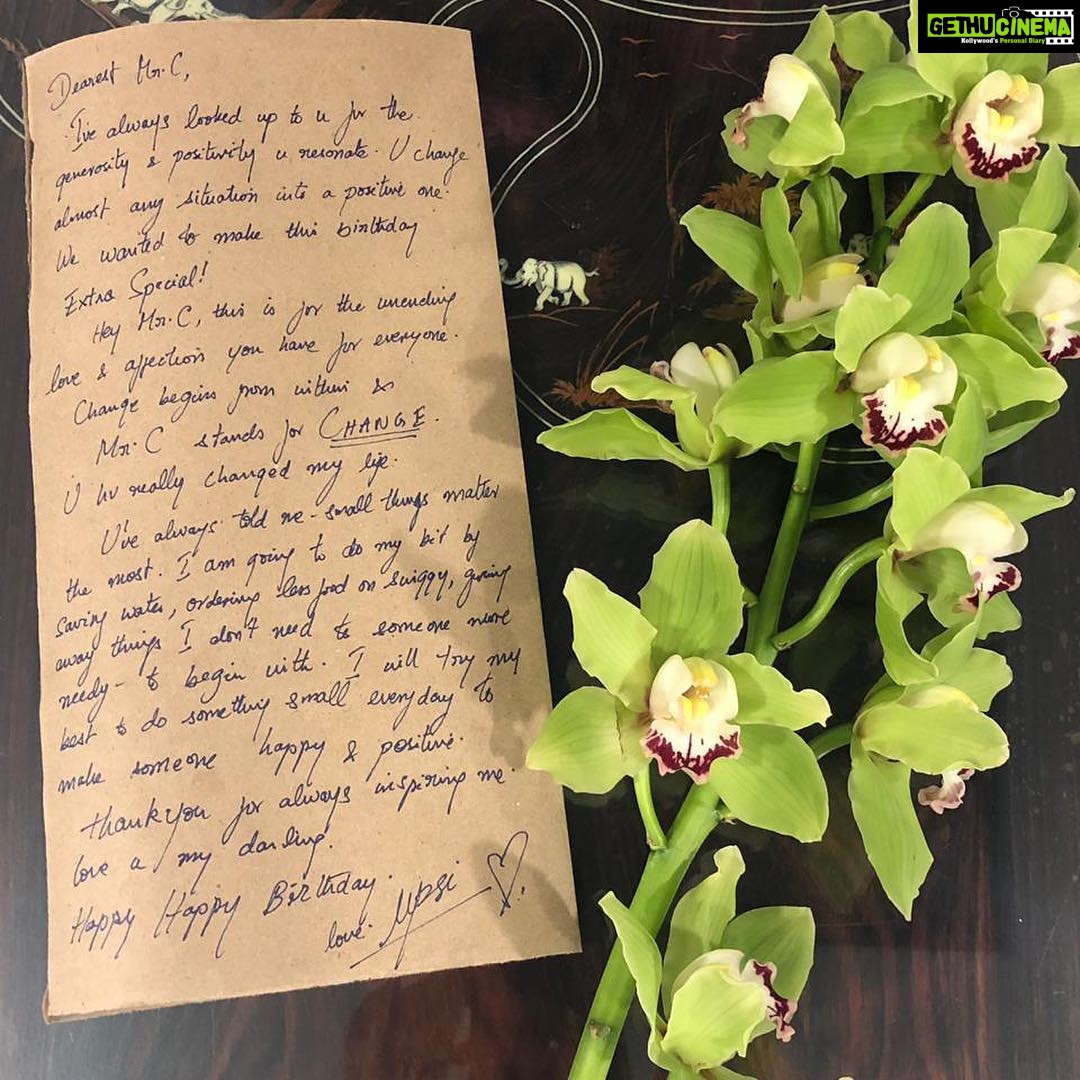 GETHUCINEMA
Kollywood's Personal Diary
Dearest Mr. C,
I've always looked up to u for the
generosity & positivity u resonate. U change
almost any situation into a positive one.
We wanted to make this birthday
Extra Special!
Hey Mr. C, this is for the unending
love & affection you have for everyone.
Change begins from within &
Mr. C stands for CHANGE.
U hv really changed my life.
U've always told me - small things matter
the most. I am going to do my bit by
saving water, ordering less food on swiggy, giving
away things I don't need to someone more
needy - to begin with. I will try my
best to do something small everyday to
make someone happy & positive.
Thankyou for always inspiring me.
love u my darling.
Happy Happy Birthday.
love. Upsi